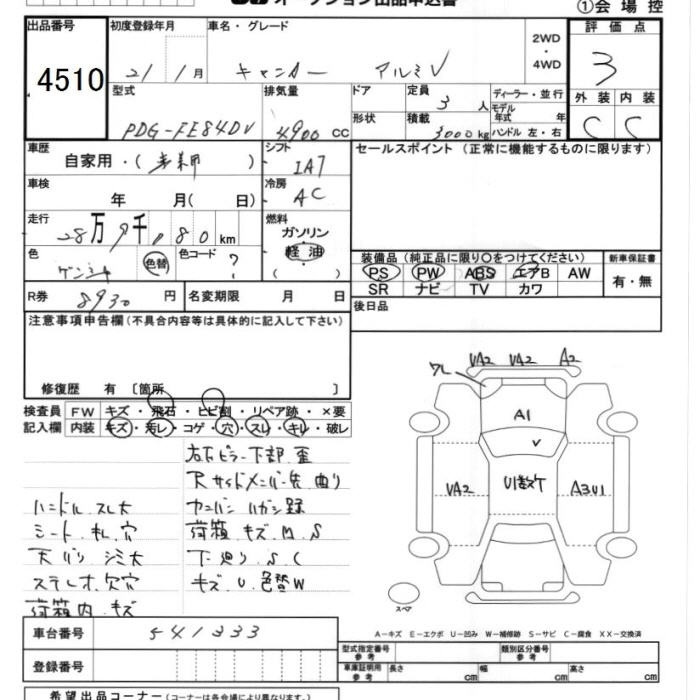 オークション出品申込書
①会 場 控
出品番号 初度登録年月 車名・グレード 2WD ・ 4WD 評価点
4510 21 / 1 月 キャンター アルミV 3
型式 排気量 ドア 定員 3 人 ディーラー・並行 外装 内装
PDG-FE84DV 4900 cc 形状 積載 3000 kg モデル年式 年 ハンドル 左・右 C C
車歴 自家用・( ) シフト IA7 セールスポイント (正常に機能するものに限ります)
車検 年 月( 日) 冷房 AC
走行 28万9千180km 燃料 ガソリン 軽油 ( )
色 色替 色コード ? 装備品 (純正品に限り○をつけてください) 新車保証書
PS PW ABS エアB AW 有・無
SR ナビ TV カワ
R券 8930 円 名変期限 月 日 後日品
注意事項申告欄 (不具合内容等は具体的に記入して下さい)
修復歴 有 〔箇所 〕
検査員 FW キズ・飛石・ヒビ割・リペア跡・×要
記入欄 内装 キズ・汚レ・コゲ・穴・スレ・キレ・破レ
右下ピラー下部 歪
Rサイドメンバー先 曲り
ハンドル スレ大
シート 札 穴 荷箱 キズ M S
天バリ シミ大 下廻り S C
ステレオ 欠穴 キズ U 色替W
荷箱内 キズ
ワレ VA2 VA2 A2
A1
V
VA2 U1数ケ A3U1
スペア
A-キズ E-エクボ U-凹み W-補修跡 S-サビ C-腐食 XX-交換済
車台番号 541333
登録番号
型式指定番号 参考 類別区分番号 参考
車庫証明用 参考 長さ cm 幅 cm 高さ cm
希望出品コーナー (コーナーは各会場により異なります)